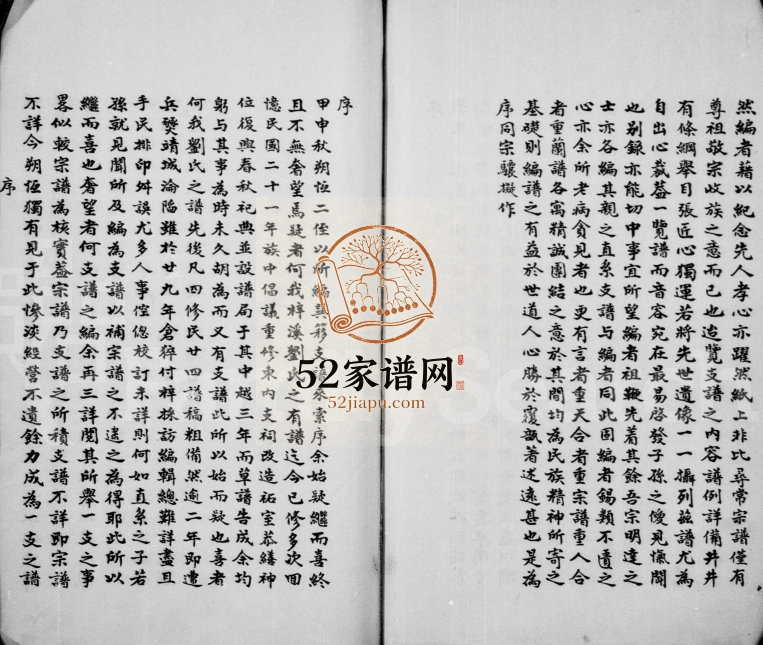 然編者藉以紀念先人孝心亦躍然紙上非比尋常宗譜僅有
尊祖敬宗收族之意而已也迨覽支譜之內容譜例詳備井井
有條綱舉目張匠心獨運若將先世遺像一一攝列茲譜尤為
自出心裁葢一覽譜而音容宛在最易啓發子孫之僾見愾聞
也別錄亦能切中事宜所望編者祖鞭先着其餘吾宗明達之
士亦各編其親之直系支譜與編者同此固編者錫類不匱之
心亦余所老病貪見者也更有言者重天合者重宗譜重人合
者重蘭譜各寓精誠團結之意於其間均為民族精神所寄之
基礎則編譜之有益於世道人心勝於覆瓿著述遠甚也是為
序同宗驤擬作
序
甲申秋朔恒二侄以所編支譜來索序余始疑繼而喜終
且不無奢望焉疑者何我梓溪劉氏之有譜迄今已修多次回
憶民國二十一年族中倡議重修東內支祠改造祏室恭繕神
位復興春秋祀典並設譜局于其中越三年而草譜告成余均
躬與其事為時未久胡為而又有支譜此所以始而疑也喜者
何我劉氏之譜先後凡四修民廿四譜稿粗備然逾二年即遭
兵燹靖城淪陷雖於廿九年倉猝付梓採訪編輯總難詳盡且
手民排印舛誤尤多人事倥偬校訂未詳則何如直系之子若
孫就見聞所及編為支譜以補宗譜之不逮之為得耶此所以
繼而喜也奢望者何支譜之編余再三詳閱其所舉一支之事
畧似較宗譜為核實葢宗譜乃支譜之所積支譜不詳即宗譜
不詳今朔恒獨有見于此慘淡經營不遺餘力成為一支之譜
序
52家谱网
52jiapu.com